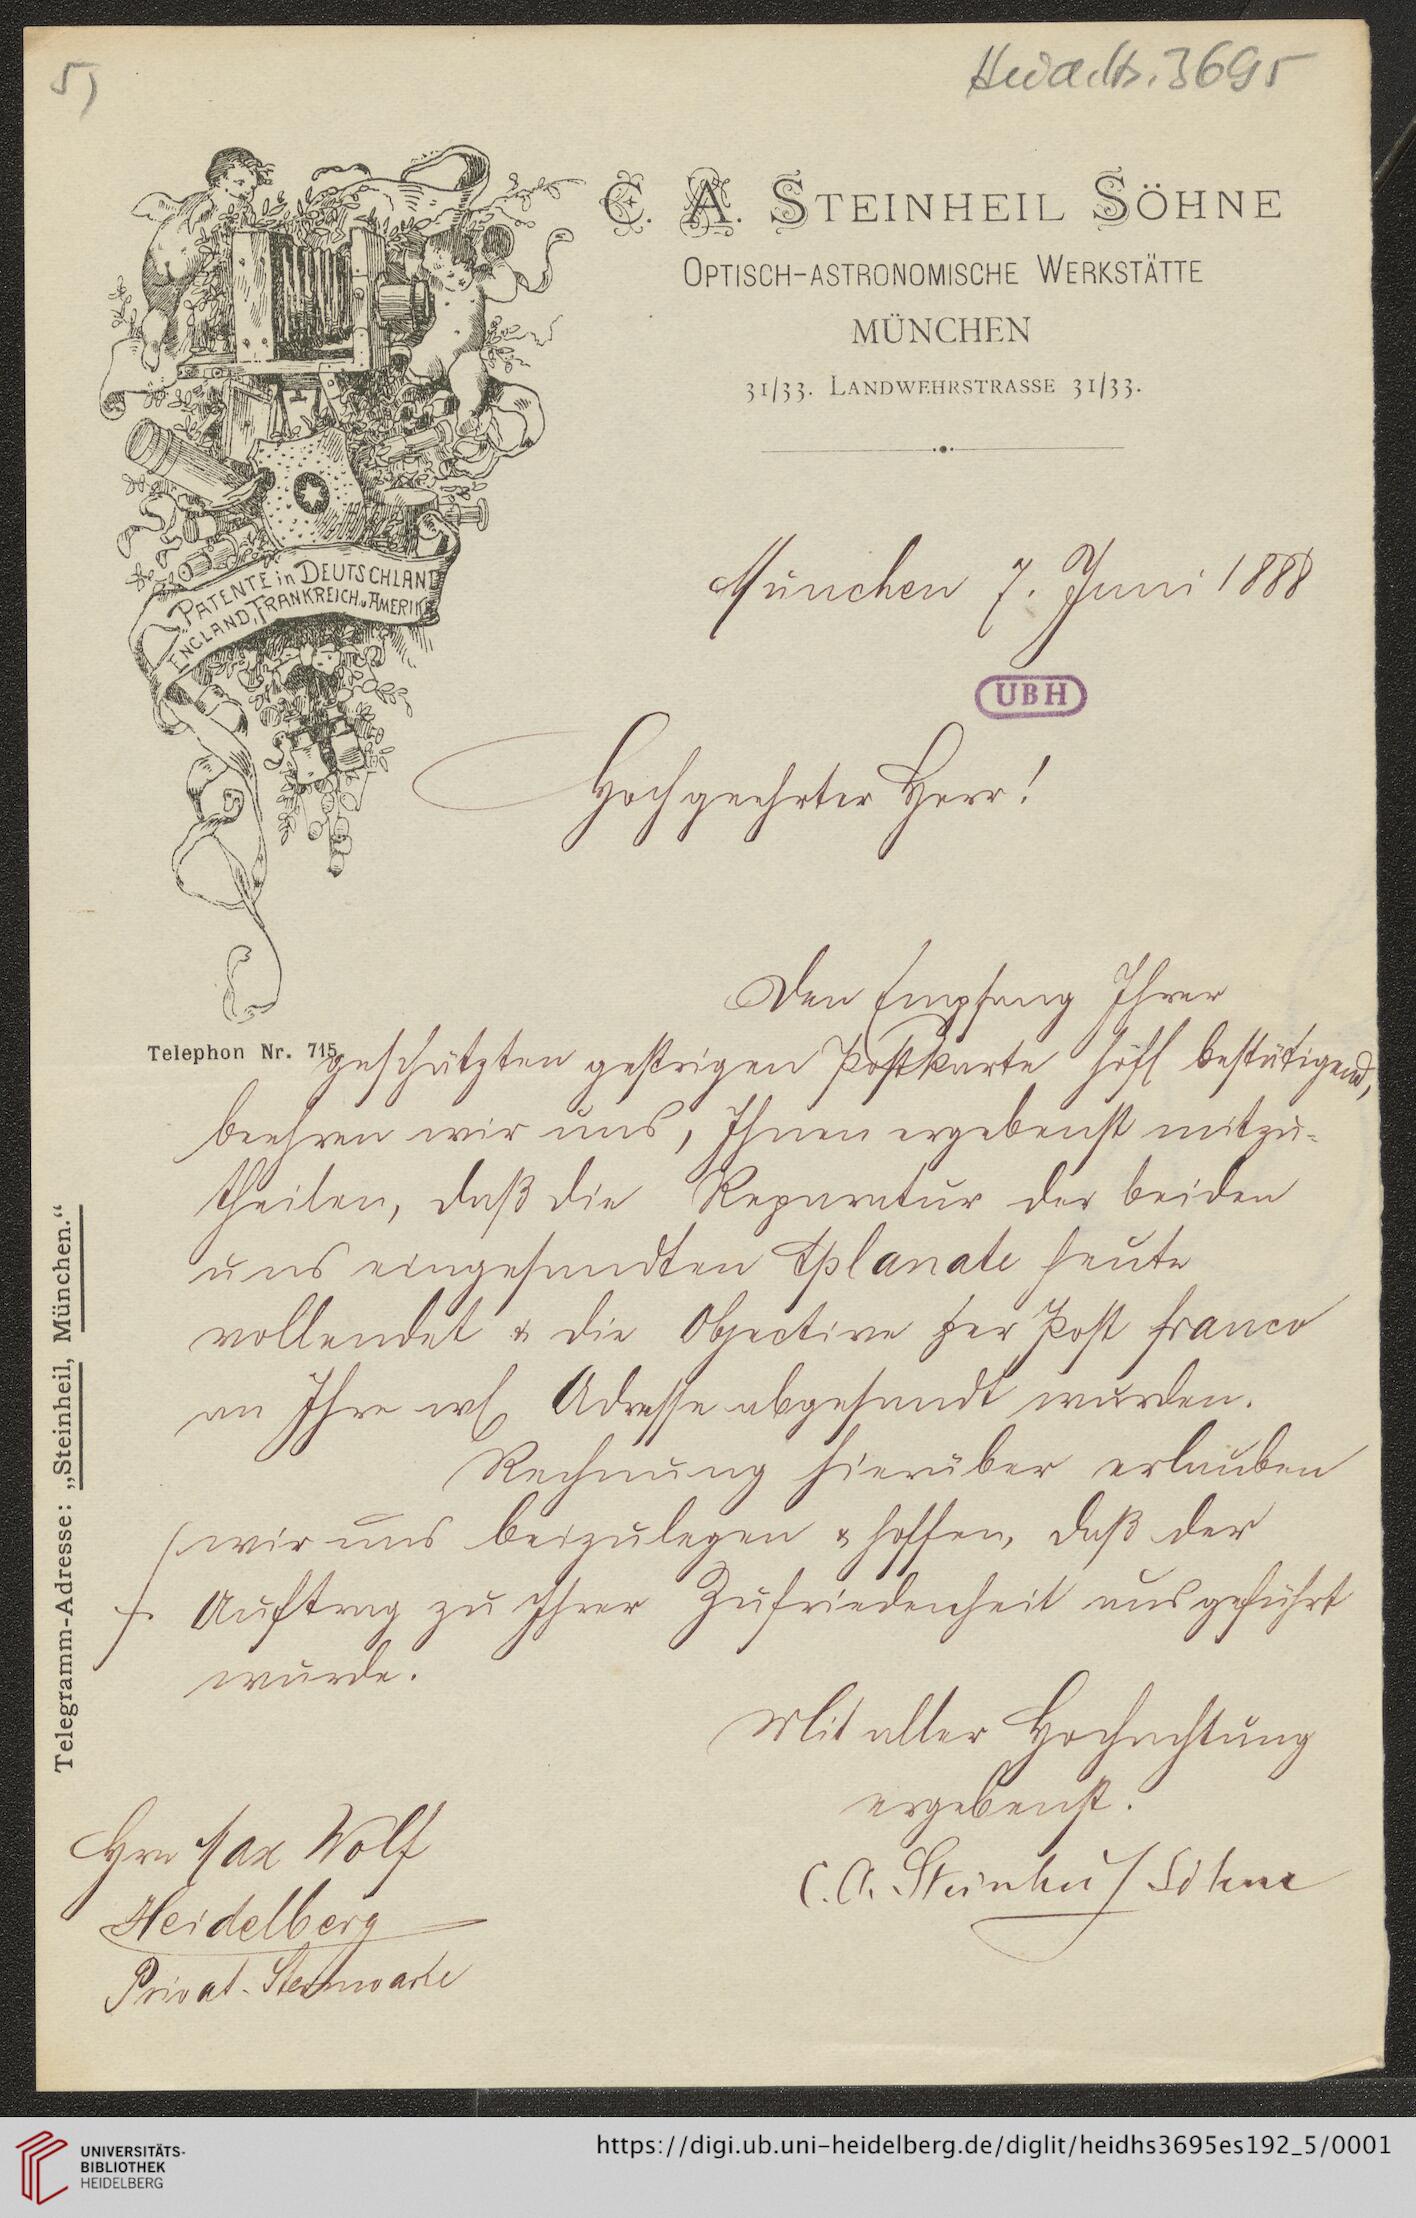 5)
Heid. Hs. 3695
C. A. STEINHEIL SÖHNE
OPTISCH-ASTRONOMISCHE WERKSTÄTTE
MÜNCHEN
31/33. LANDWEHRSTRASSE 31/33.
PATENTE in DEUTSCHLAND
ENGLAND, FRANKREICH u. AMERIKA
München 7. Juni 1888
UBH
Hochgeehrter Herr!
Den Empfang Ihrer
Telephon Nr. 715.
geschätzten gestrigen Postkarte höfl bestätigend,
beehren wir uns, Ihnen ergebenst mitzu-
theilen, daß die Reparatur der beiden
uns eingesandten Aplanate heute
vollendet & die Objective per Post franco
an Ihre wh Adresse abgesandt wurden.
Rechnung hierüber erlauben
wir uns beizulegen & hoffen, daß der
f. Auftrag zu Ihrer Zufriedenheit ausgeführt
wurde.
Mit aller Hochachtung
ergebenst.
C. A. Steinheil Söhne
Hrn Max Wolf
Heidelberg
Privat-Sternwarte
Telegramm-Adresse: „Steinheil, München.“
UNIVERSITÄTS-
BIBLIOTHEK
HEIDELBERG
https://digi.ub.uni-heidelberg.de/diglit/heidhs3695es192_5/0001